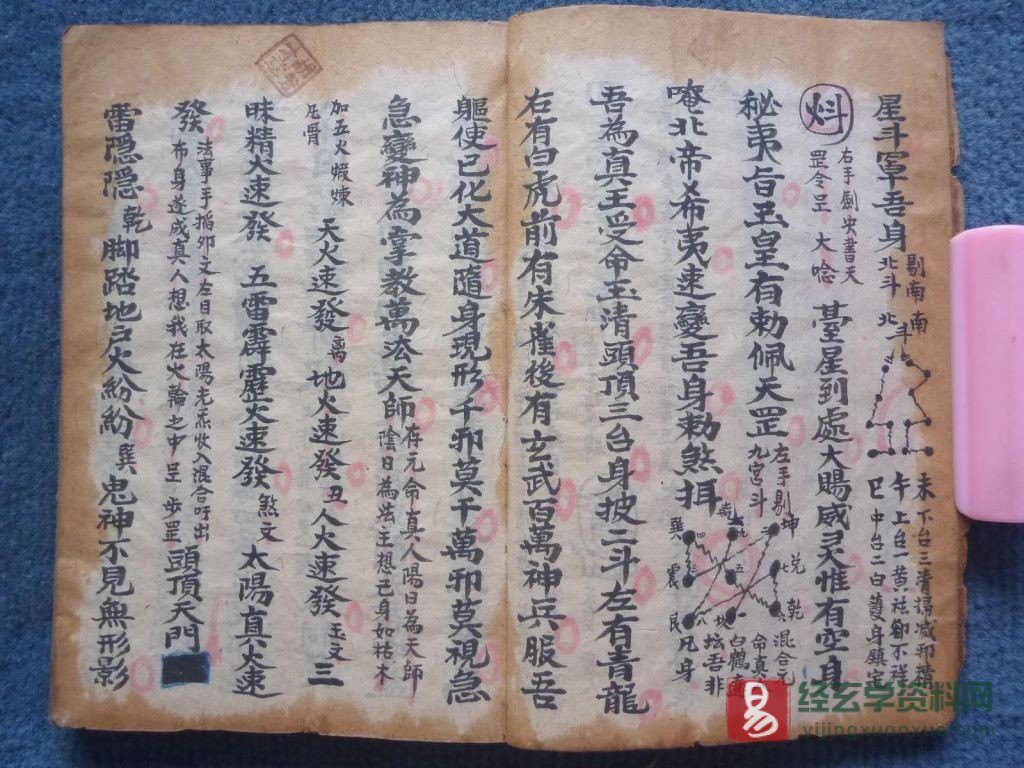 星斗罩吾身 北斗 剔南 北斗 南
未下台三清 滅邪精
午上台一黃祛卻不祥
巳中台二白護身鎮定
右手劍尖書天
罡令呈 大唸
臺星到處大賜威灵惟有空身
秘夷旨玉皇有勅佩天罡 右手剔 九宮斗
坤 兌 乾 坎 艮 震 巽 離
混合元
命真
白鶴
坛吾非
凡身
唵北帝 希夷速變吾身勅煞摄
吾為真王受命玉清頭頂三台身披二斗左有青龍
右有白虎前有朱雀後有玄武百萬神兵服吾
驅使已化大道隨身現形千邪莫千萬邪莫視急
急變神為掌教萬法天師 存元命真人陽日為天師
陰日為法王想己身如枯木
加五火煆煉
凡骨
天火速發 离 地火速發 丑 人火速發 玉文 三
昧精火速發 五雷霹靂火速發 煞文 太陽真火速
發 法事手掐卯文左目取太陽光炁收入混合吁出
布身遂成真人想我在火輪之中呈 步罡
頭頂天門
雷隱隱 乾 脚踏地戶火紛紛 巽 鬼神不見無形影
易
经玄学资料网
yijingxuanxue.com